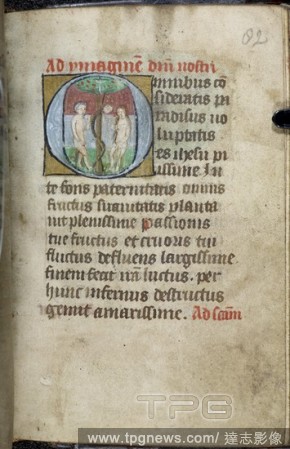 82
Ad ymaginē dn̄i nostri
Omnibus cō
sideratis pa
radisus uo
luptatis
es ihesu pi
issime In
te fons paternitatis
fructus suauitatis planta
uit plenissime passionis
tue fructus et cruoris tui
fluctus defluens largissime
finem fecit luctus. per
hunc infernus destructus
gemit amarissime. Ad scām
TPG
www.tpgnews.com/ 達志影像